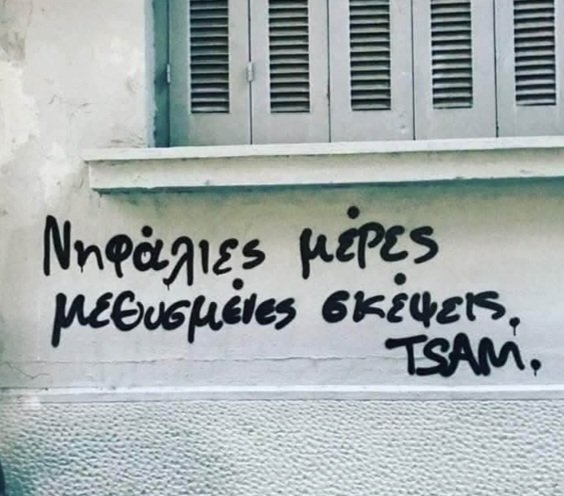 Νηφάλιες μέρες
μεθυσμένες σκέψεις.
TSAM.